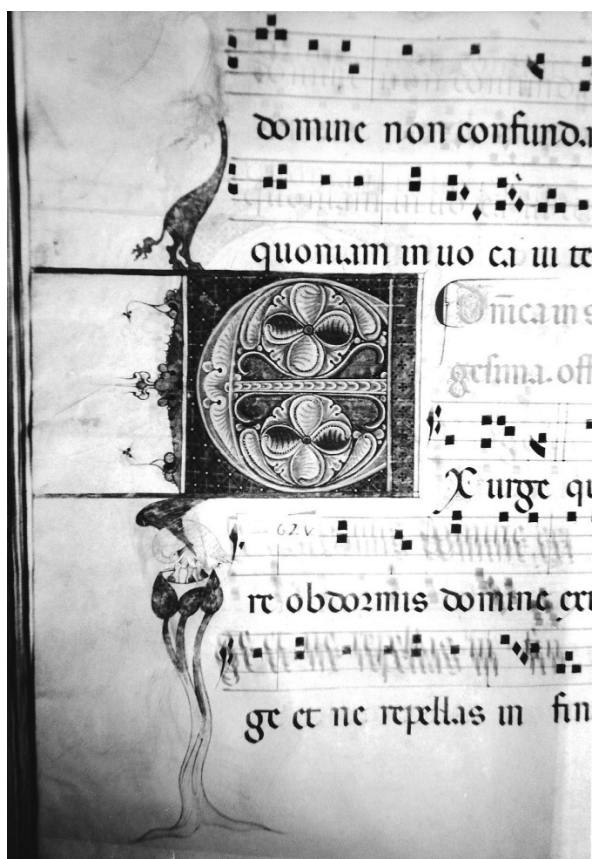 domine non confunda
quoniam in uo ca ui te
Dñica in s
gesima. off
E X urge qu
62 v
re obdormis domine exu
ge et ne repellas in fin